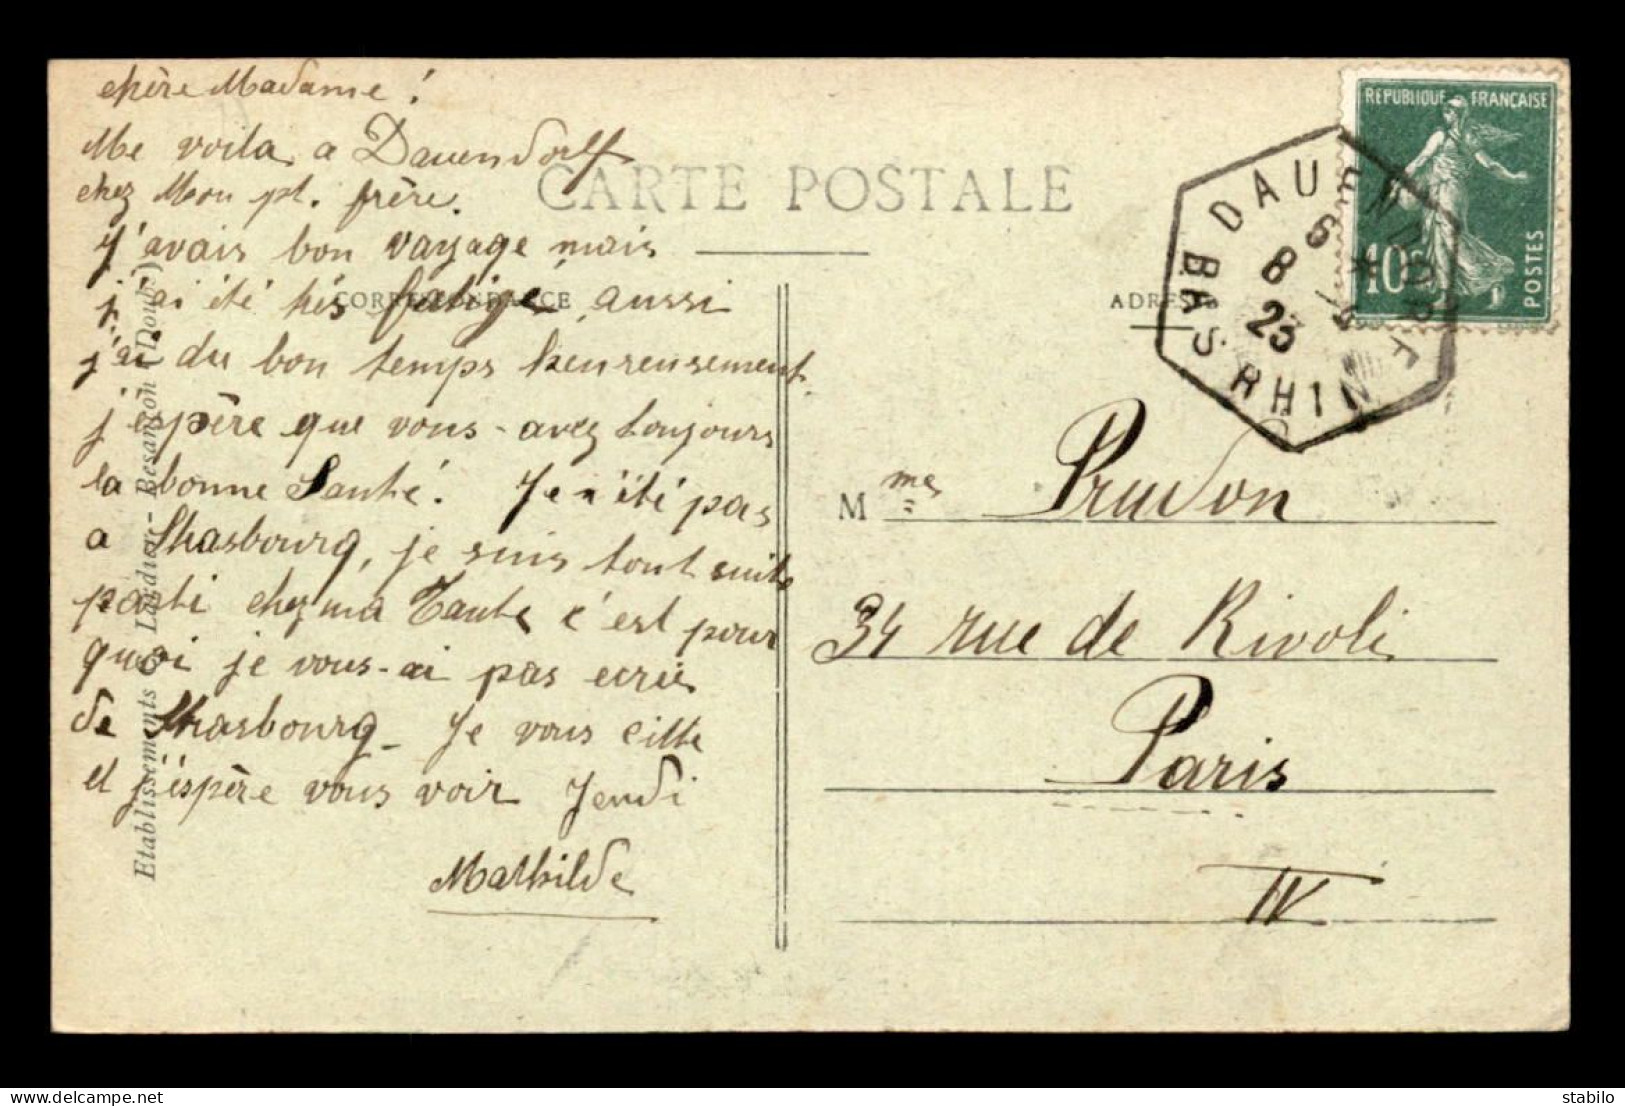 chère Madame !
Me voila a Dauendorf
chez Mon pt. frère.
J'avais bon vayage mais
j'ai été trés fatigé, aussi
j'ai du bon temps heureusement.
j'espère que vous-avez toujours
la bonne Santé. Je n'été pas
a Strasbourg, je suis tout suite
parti chez ma Tante c'est pour
quoi je vous-ai pas ecrie
de Strasbourg_ Je vous
et j'éspère vous voir Jeudi
Mathilde
CARTE POSTALE
CORRESPONDANCE
ADRESSE
Etablissements C. Lardier - Besançon (Doubs)
REPUBLIQUE FRANÇAISE
10c
POSTES
DAUENDORF
8
23
BAS RHIN
Mme Prudon
34 rue de Rivoli
Paris
IV
delcampe.net
stabilo